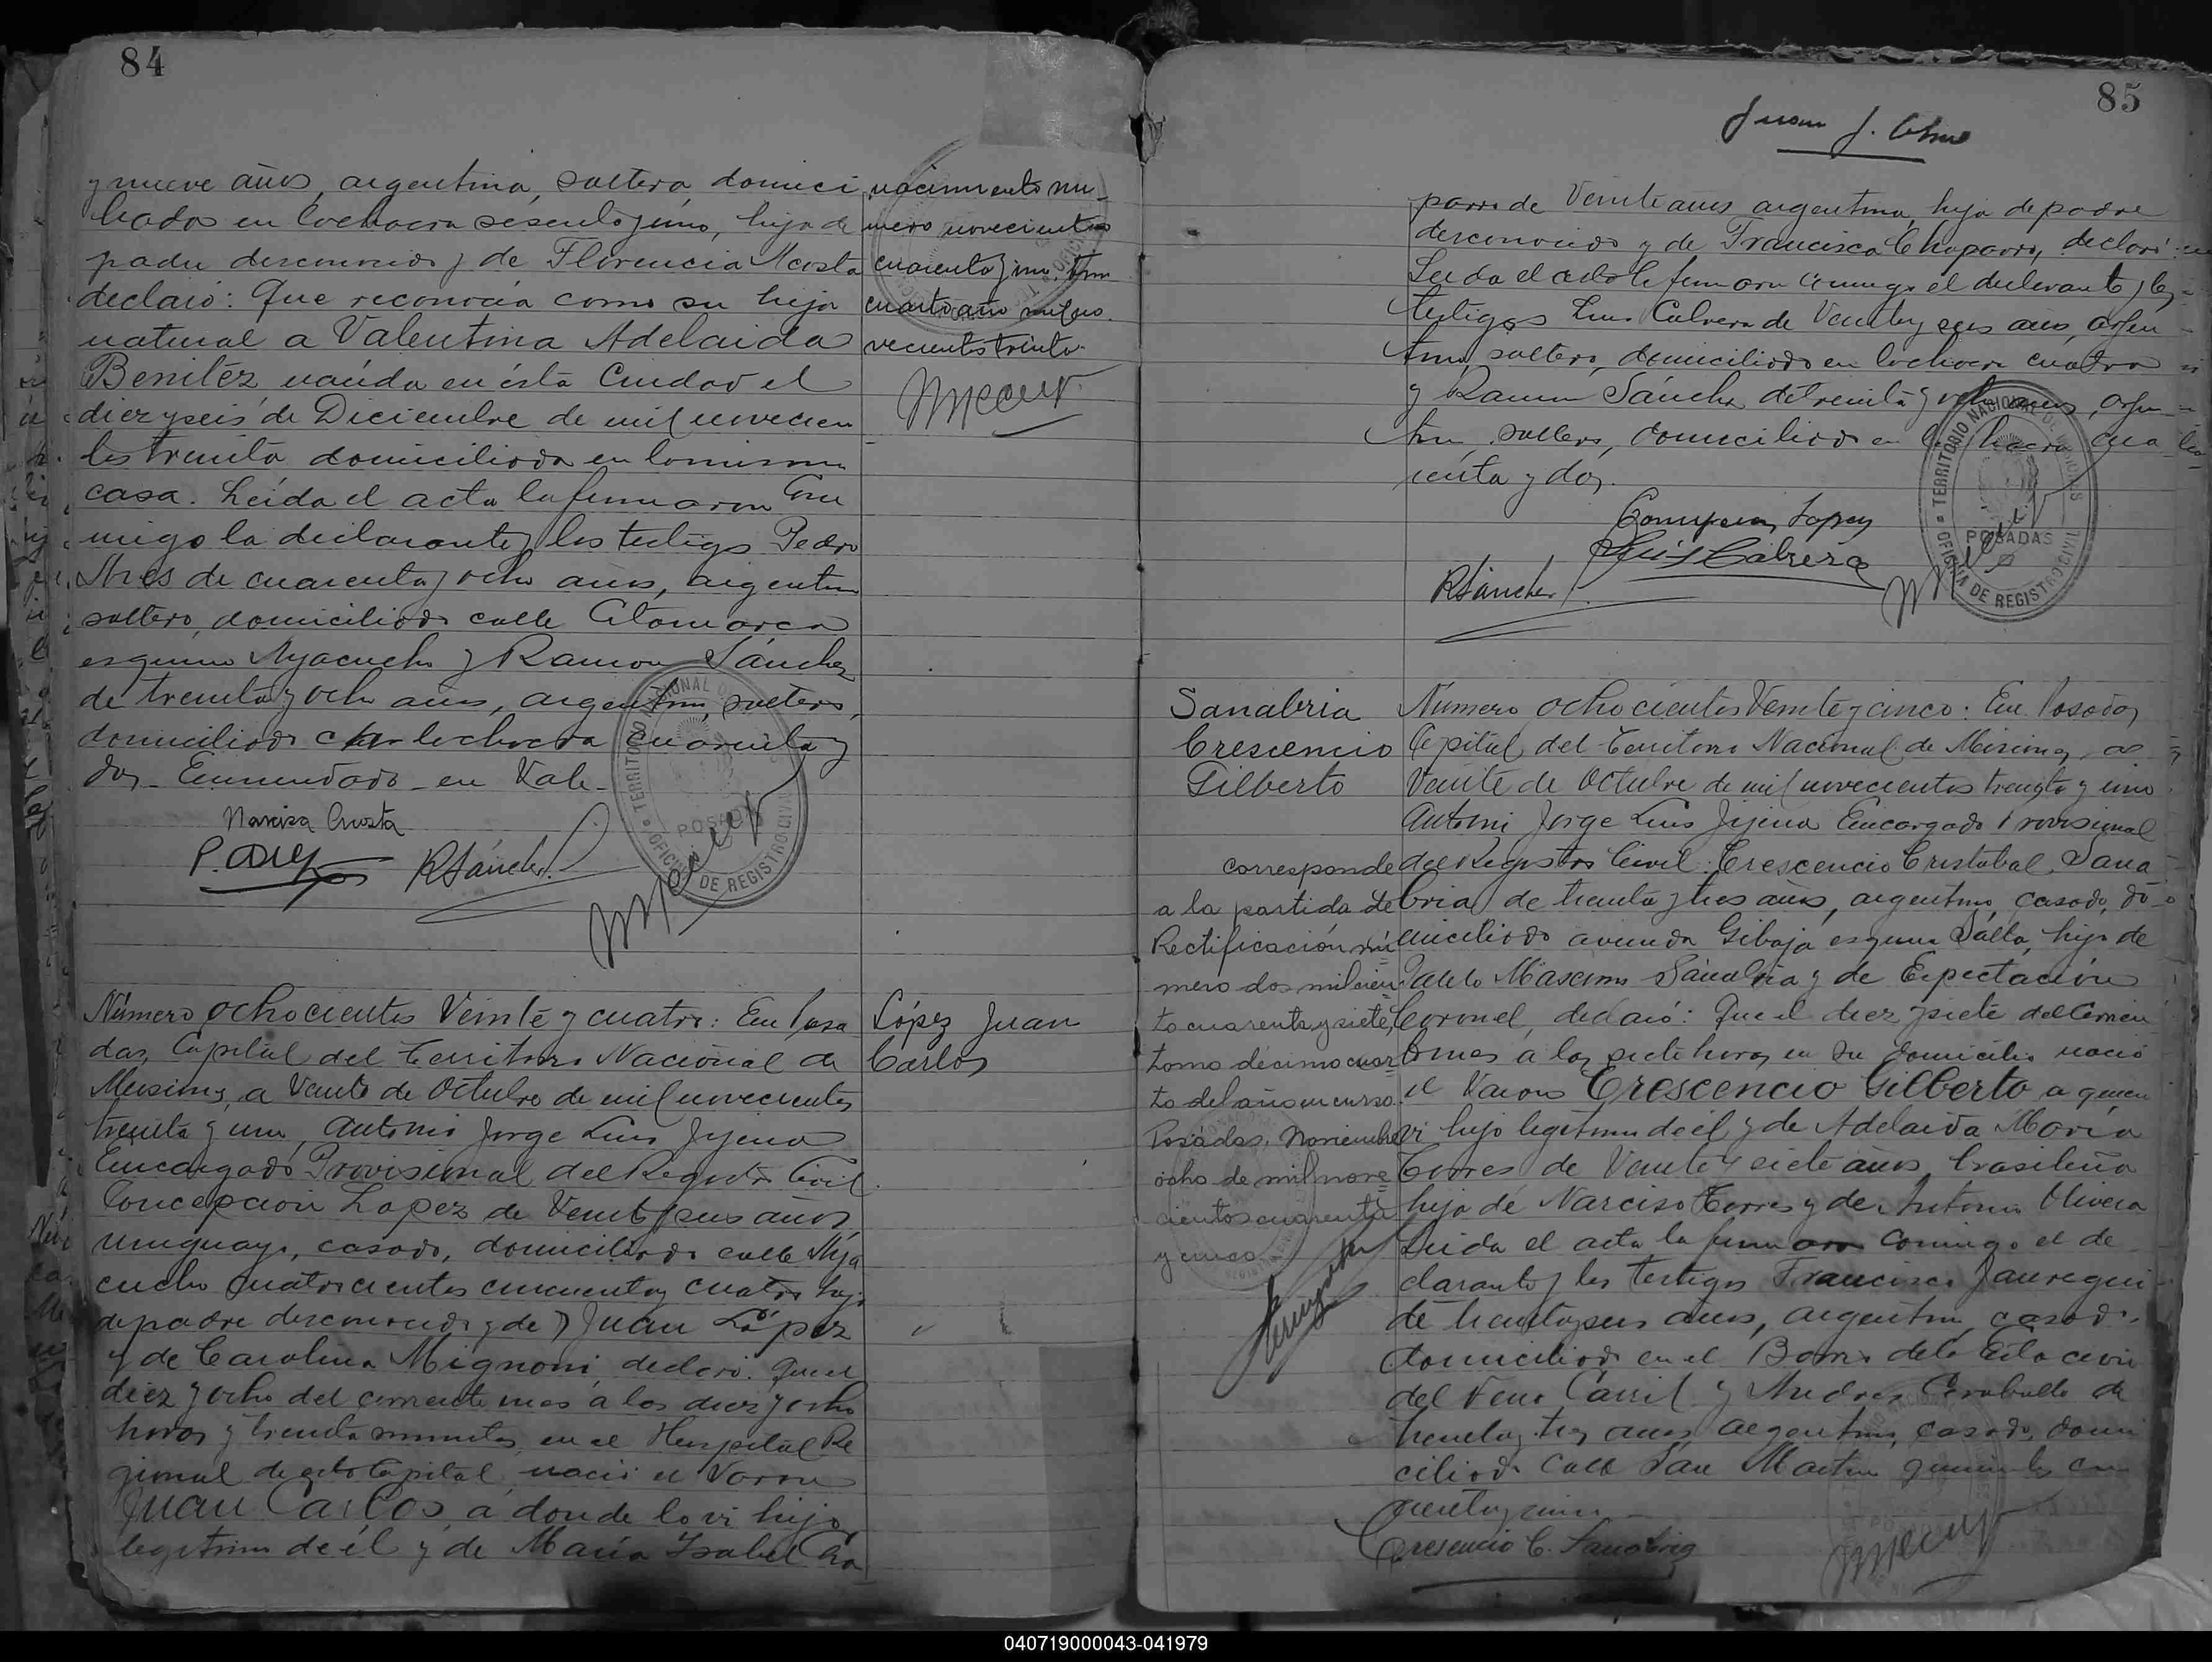 84
y nueve años, argentina, soltera, domici
liada en lochacra sesenta y uno, hija de
padre desconocido y de Florencia Acosta
declaró: Que reconocía como su hija
natural a Valentina Adelaida
Benítez nacida en ésta Ciudad el
diez y seis de Diciembre de mil novecien
tos treinta domiciliada en la misma
casa. Leída el acta la firmaron con
migo la declarante y los testigos Pedro
Ares de cuarenta y ocho años, argentino
soltero, domiciliado calle Catamarca
esquina Ayacucho y Ramon Sánchez
de treinta y ocho años, argentino, soltero,
domiciliado lochacra cuarenta y
dos. Enmendado - en Vale -
Narcisa Acosta
RSánchez
nacimiento nu-
mero novecientos
cuarenta y uno. Tomo
cuarto año mil no.
vecientos treinta.
TERRITORIO NACIONAL DE
POSADAS
OFICINA DE REGISTRO CIVIL
Número ochocientos Veinte y cuatro: En Posa
das, Capital del Territorio Nacional de
Misiones, a Veinte de Octubre de mil novecientos
treinta y uno, Antonio Jorge Luis Jijena
Encargado Provisional del Registro Civil.
Concepción Lopez de Veinte y seis años,
uruguayo, casado, domiciliado calle Aya
cucho cuatrocientos cincuenta y cuatro hijo
de padre desconocido y de) Juan López
y de Carolina Mignoni, declaró: Que el
diez y ocho del corriente mes a las diez y ocho
horas y treinta minutos, en el Hospital Re
gional de esta Capital, nació el Varon
Juan Carlos, a donde lo vi hijo
legitimo de él y de María Isabel Cha
López Juan
Carlos
85
Juan J.
parro de Veinte años argentina, hija de padre
desconocido y de Francisca Chaparro, declaró:
Leida el acta la firmaron conmigo el declarante y los
testigos Luis Cabrera de Veinte y seis años, argen
tino, soltero, domiciliado en lochacra cuatro
y Ramon Sánchez de treinta y ocho años, argen
tino, soltero, domiciliado en la chacra cua
renta y dos.
Lopez
Luis Cabrera
RSánchez
TERRITORIO NACIONAL DE MISIONES
POSADAS
OFICINA DE REGISTRO CIVIL
Sanabria
Crescencio
Gilberto
corresponde
a la partida de
Rectificación nú
mero dos mil cien
to cuarenta y siete,
tomo décimo cuar
to del año en curso.
Posadas, Noviembre
ocho de mil nove
cientos cuarenta
y cinco
Número ochocientos Veinte y cinco: En Posadas,
Capital del Territorio Nacional de Misiones, a
Veinte de Octubre de mil novecientos treinta y uno
Antonio Jorge Luis Jijena Encargado Provisional
del Registro Civil: Crescencio Cristobal Sana
bria de treinta y tres años, argentino, casado, do
miciliado avenida Gibaja esquina Salta, hijo de
Maximo Sanabria y de Espectación
Coronel, declaró: Que el diez y siete del corrien
te mes a las siete horas, en su domicilio nació
el Varon Crescencio Gilberto a quien
vi hijo legitimo de él y de Adelaida Maria
Torres de Veinte y siete años, brasileña
hija de Narciso Torres y de Antonia Olivera
Leida el acta la firmaron conmigo el de
clarante y los testigos Francisco Jauregui
de treinta y seis años, argentino, casado,
domiciliado en el Barrio de la Estacion
del Ferro Carril y Andres Caraballo de
treinta y tres años argentino, casado, domi
ciliado Calle San Martin quinientos cin
cuenta y uno
Cresencio C. Sanabria
040719000043-041979